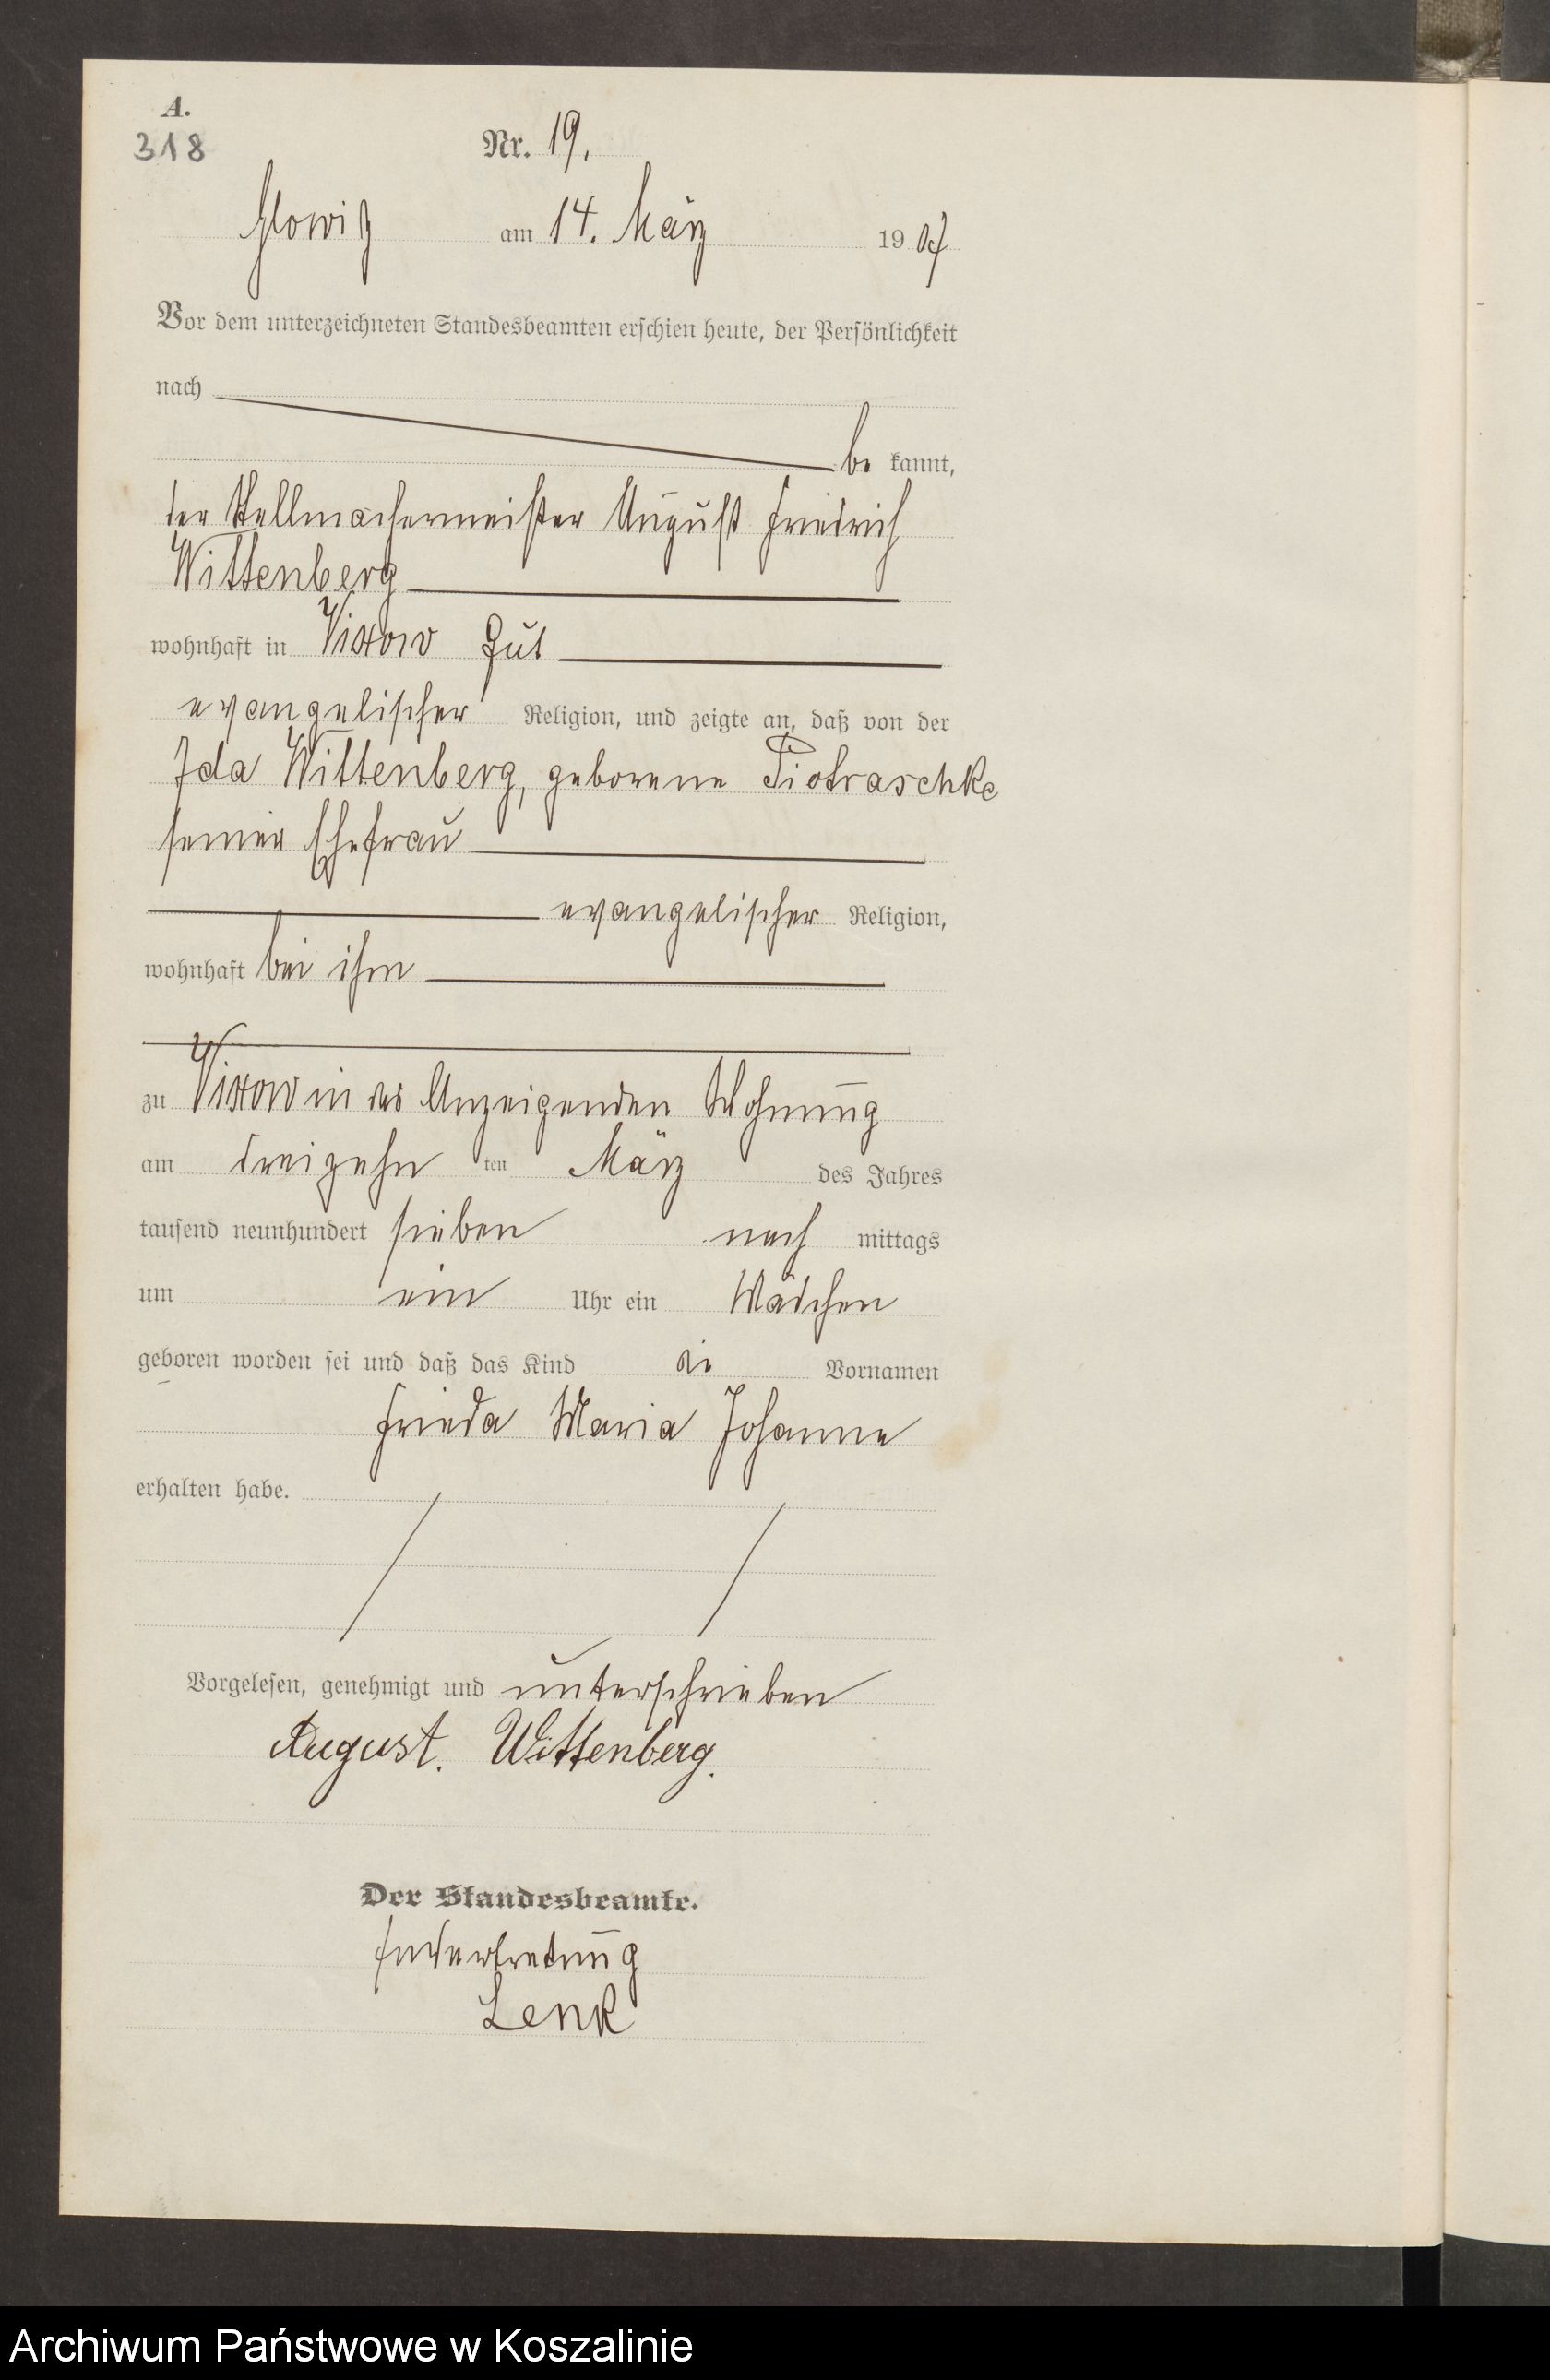 A.
318
Nr. 19.
Glowitz am 14. März 1907
Vor dem unterzeichneten Standesbeamten erschien heute, der Persönlichkeit
nach
be kannt,
der Stellmachermeister August Friedrich
Wittenberg
wohnhaft in Vixow Gut
evangelischer Religion, und zeigte an, daß von der
Ida Wittenberg, geborene Piotraschke
seiner Ehefrau
evangelischer Religion,
wohnhaft bei ihm
zu Vixow in des Anzeigenden Wohnung
am dreizehn ten März des Jahres
tausend neunhundert sieben nach mittags
um ein Uhr ein Mädchen
geboren worden sei und daß das Kind die Vornamen
Frieda Maria Johanne
erhalten habe.
Vorgelesen, genehmigt und unterschrieben
August. Wittenberg.
Der Standesbeamte.
In Vertretung
Lenk
Archiwum Państwowe w Koszalinie